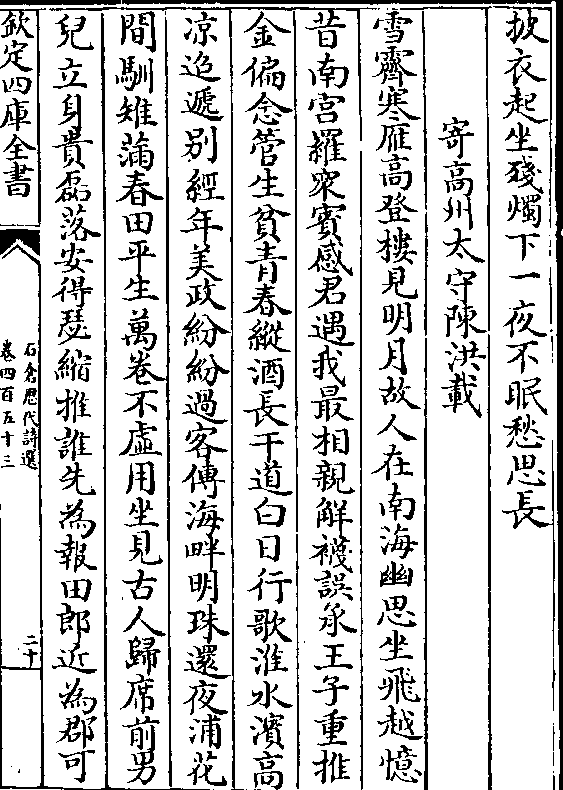 披衣起坐殘燭下一夜不眠愁思長
寄高州太守陳洪載
雪霽寒雁高登樓見明月故人在南海幽思坐飛越憶
昔南宮羅衆賓感君遇我最相親解襪誤承王子重推
金偏念管生貧青春縱酒長干道白日行歌淮水濱高
凉迢遞别經年美政紛紛過客傳海畔明珠還夜浦花
間馴雉滿春田平生萬卷不虛用坐見古人歸席前男
兒立身貴磊落安得瑟縮推誰先為報田郎近為郡可
欽定四庫全書
石倉歷代詩選
卷四百五十三
二十